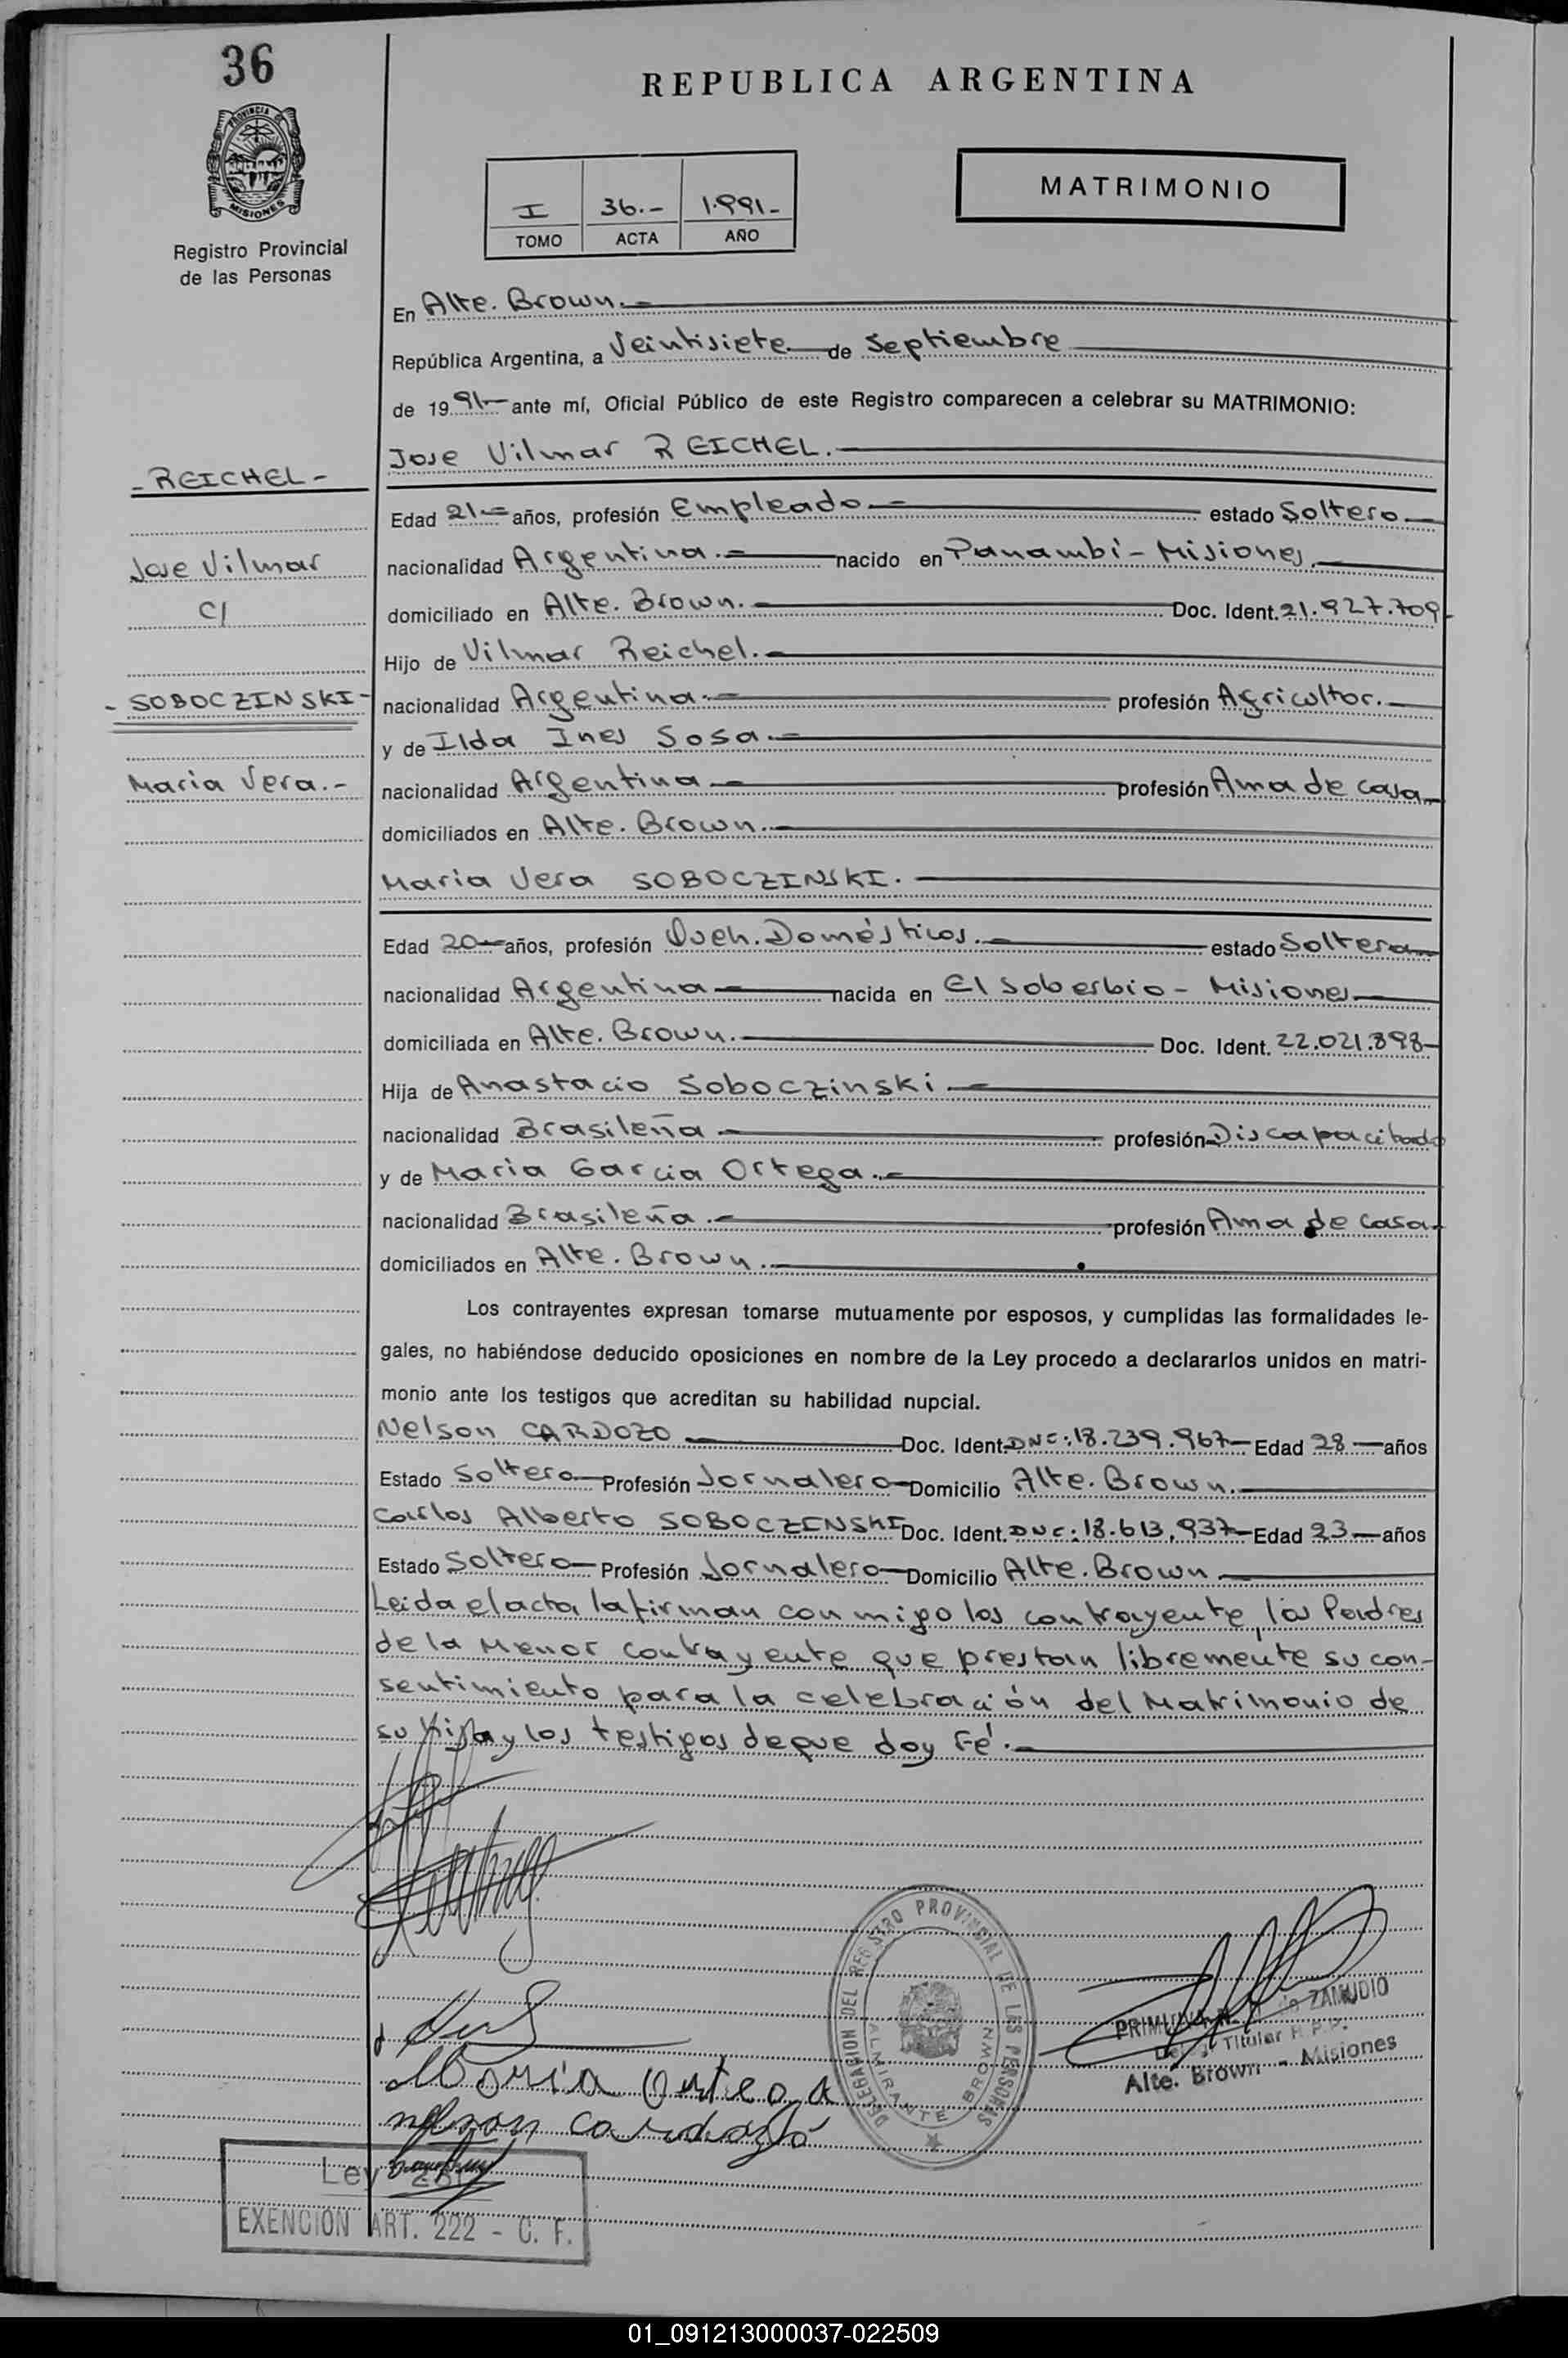 36
PROVINCIA DE
MISIONES
Registro Provincial
de las Personas
REPUBLICA ARGENTINA
I 36.- 1.991-
TOMO ACTA AÑO
MATRIMONIO
En Alte. Brown.-
República Argentina, a Veintisiete de Septiembre
de 1991- ante mí, Oficial Público de este Registro comparecen a celebrar su MATRIMONIO:
Jose Vilmar REICHEL.
- REICHEL -
Edad 21- años, profesión Empleado.- estado Soltero
Jose Vilmar
nacionalidad Argentina.- nacido en Panambí - Misiones.
C/
domiciliado en Alte. Brown.- Doc. Ident. 21.927.709-
Hijo de Vilmar Reichel.-
- SOBOCZINSKI -
nacionalidad Argentina.- profesión Agricultor.-
y de Ilda Ines Sosa.-
Maria Vera.-
nacionalidad Argentina- profesión Ama de casa
domiciliados en Alte. Brown.-
Maria Vera SOBOCZINSKI.
Edad 20- años, profesión Queh. Domésticos.- estado Soltera
nacionalidad Argentina- nacida en El Soberbio - Misiones
domiciliada en Alte. Brown. Doc. Ident. 22.021.898-
Hija de Anastacio Soboczinski.-
nacionalidad Brasileña- profesión Discapacitado
y de Maria Garcia Ortega.-
nacionalidad Brasileña.- profesión Ama de casa-
domiciliados en Alte. Brown.-
Los contrayentes expresan tomarse mutuamente por esposos, y cumplidas las formalidades le-
gales, no habiéndose deducido oposiciones en nombre de la Ley procedo a declararlos unidos en matri-
monio ante los testigos que acreditan su habilidad nupcial.
Nelson CARDOZO Doc. Ident. 18.239.967- Edad 28- años
Estado Soltero- Profesión Jornalero- Domicilio Alte. Brown.
Carlos Alberto SOBOCZINSKI Doc. Ident. 18.613.937- Edad 23- años
Estado Soltero- Profesión Jornalero- Domicilio Alte. Brown.
Leida el acta la firman con migo los contrayente, los Padres
de la Menor contrayente que prestan libremente su con-
sentimiento para la celebración del Matrimonio de
su hija y los testigos de que doy Fé.-
DELEGACION DEL REGISTRO PROVINCIAL DE LAS PERSONAS
ALMIRANTE BROWN
ZAMUDIO
Titular R.P.P.
Alte. Brown - Misiones
Maria Ortega
nelson cardozo
Ley
EXENCION ART. 222 - C. F.
01_091213000037-022509